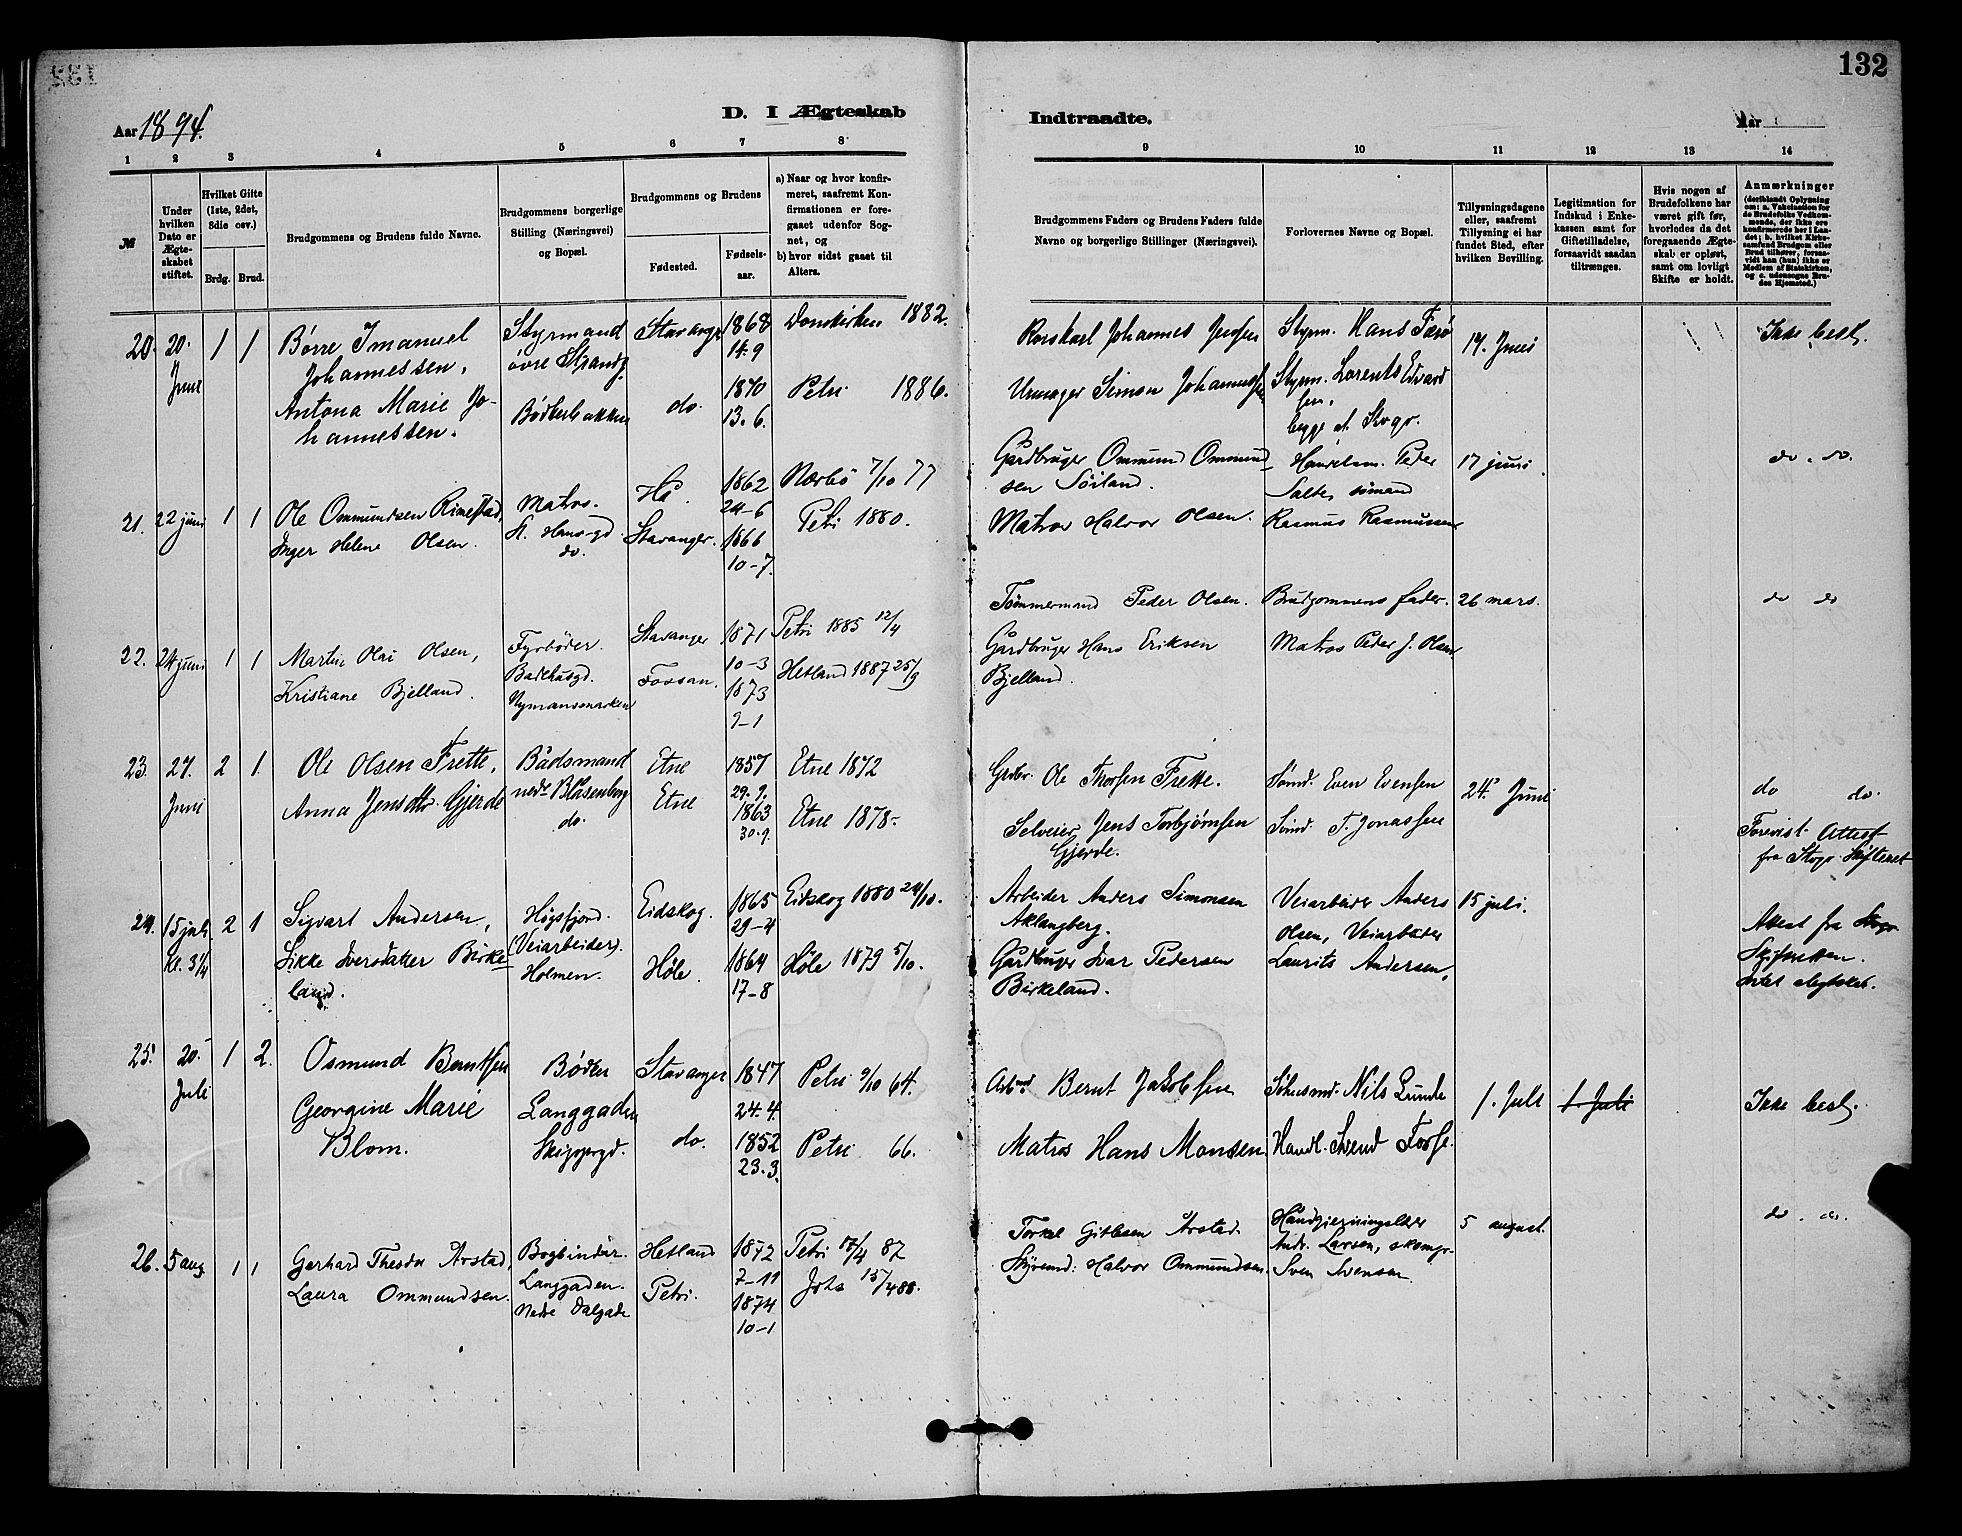 132
Aar 1894.
D. I Ægteskab
Indtraadte.
Aar
1 2 3 4 5 6 7 8
9 10 11 12 13 14
№
Under hvilken Dato er Ægteskabet stiftet.
Hvilket Gifte (1ste, 2det, 3die osv.)
Brdg. Brud.
Brudgommens og Brudens fulde Navne.
Brudgommens borgerlige Stilling (Næringsvei) og Bopæl.
Brudgommens og Brudens
Fødested.
Fødselsaar.
a) Naar og hvor konfirmeret, saafremt Konfirmationen er foregaaet udenfor Sognet, og
b) hvor sidst gaaet til Alters.
Brudgommens Faders og Brudens Faders fulde Navne og borgerlige Stillinger (Næringsvei).
Forlovernes Navne og Bopæl.
Tillysningsdagene eller, saafremt Tillysning ei har fundet Sted, efter hvilken Bevilling.
Legitimation for Indskud i Enkekassen samt for Giftetilladelse, forsaavidt saadan tiltrænges.
Hvis nogen af Brudefolkene har været gift før, hvorledes da det foregaaende Ægteskab er opløst, samt om lovligt Skifte er holdt.
Anmærkninger (deriblandt Oplysning om: a. Vakcination for de Brudefolks Vedkommende, der ikke ere konfirmerede her i Landet; b. hvilket Kirkesamfund Brudgom eller Brud tilhører, forsaavidt han (hun) ikke er Medlem af Statskirken, og c. udensogns Brudes Hjemsted.)
20. 20. Juni 1 1
Børre Imanuel
Johannessen,
Antona Marie Jo-
hannessen.
Styrmand
øvre Strandg.
Bødkerbakken
Stavanger
do.
1868
14.9
1870
13.6.
Domkirken 1882.
Petri 1886.
Johannes Jensen
Urmager Simon Johannessen
Styrm. Hans Færø
Styrm. Lorents Edvard
sen,
begge af Stvgr.
17. Juni
Ikke besl.
21. 22 juni 1 1
Ole Ommundsen Rimestad,
Inger Helene Olsen.
Matros.
St. Hansgd.
do.
Hå.
Stavanger.
1862
24-6
1866
10-7.
Nærbö 7/10 77
Petri 1880.
Gårdbruger Ommund Ommund-
sen Söiland.
Matros Halvor Olsen.
Handelsm. Peder
Salte, sömand
Rasmus Rasmussen
17 juni.
do. do.
22. 24 juni 1 1
Martin Olai Olsen,
Kristiane Bjelland.
Fyrböder.
Badehusgd.
Nymansmarken
Stavanger
Fossan.
1871
10-3
1873
9-1
Petri 1885 12/4
Hetland 1887 25/9
Tömmermand Peder Olsen.
Gårdbruger Hans Eriksen
Bjelland.
Brudgommens fader.
Matros Peder J. Olsen.
26 mars.
do do
23. 27. Juni 2 1.
Ole Olsen Frette,
Anna Jensdtr. Gjerde
Bådsmand
nedr Blåsenborg
do.
Etne
Etne
1857
29.9.
1863
30.9.
Etne 1872
Etne 1878.
Grdbr. Ole Thorsen Frette.
Selveier Jens Torbjørnsen
Gjerde.
Sömd. Even Evensen
Sömd. T. Jonassen
24. Juni
do do.
Forevist Attest
fra Stvgr Skifteret
24. 15 juli. Kl. 3¼ 2 1
Sigvart Andersen,
Sikke Iversdatter Birke-
land.
Högsfjord.
(Veiarbeider).
Holmen.
Eidskog.
Höle.
1865
29-4
1864
17-8
Eidskog 1880 24/10.
Höle 1879 5/10.
Arbeider Anders Simonsen
Aklangberg.
Gårdbruger Ivar Pedersen
Birkeland.
Veiarbeider Anders
Olsen, Veiarbeider
Laurits Andersen.
15 juli.
Attest fra Stvgr
Skifteretten.
Intet slegtskab.
25. 20. Juli 1 2.
Osmund Berntsen
Georgine Marie
Blom.
Bødker
Langgaden
Skippergd.
Stavanger
do.
1847
24.4
1852
23.3.
Petri 9/10 64.
Petri 66.
Arbmd Bernt Jakobsen
Matros Hans Monsen
Nils Lunde
Handl. Svend Fosse.
1. Juli
1. Juli
Ikke besl.
26. 5 aug. 1 1
Gerhard Theodor Årstad,
Laura Ommundsen.
Bogbinder.
Langgaden.
Nedre Dalgade
Hetland
Petri.
1872
7-11
1874
10-1
Petri 17/4 87
Johs 15/4 88.
Torkel Gitlesen Årstad.
Styrmd: Halvor Ommundsen.
Andr. Larsen, skomgr
Sven Svensen.
5 august.
do. do.